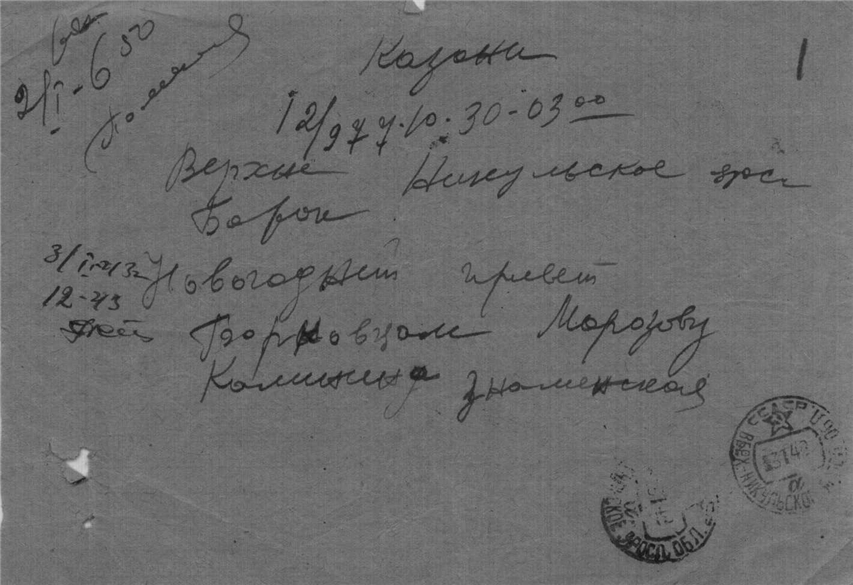 2/I-6 50
Казани
1
12/977.10.30-03 00
Верхне Никульское яросл
Борок
3/I-43г Новогодний привет
12-43
Борковцам Морозову
Калинина Знаменская
СССР
ВЕРХ-НИКУЛЬСКОЕ
ЯРОСЛ. ОБЛ.